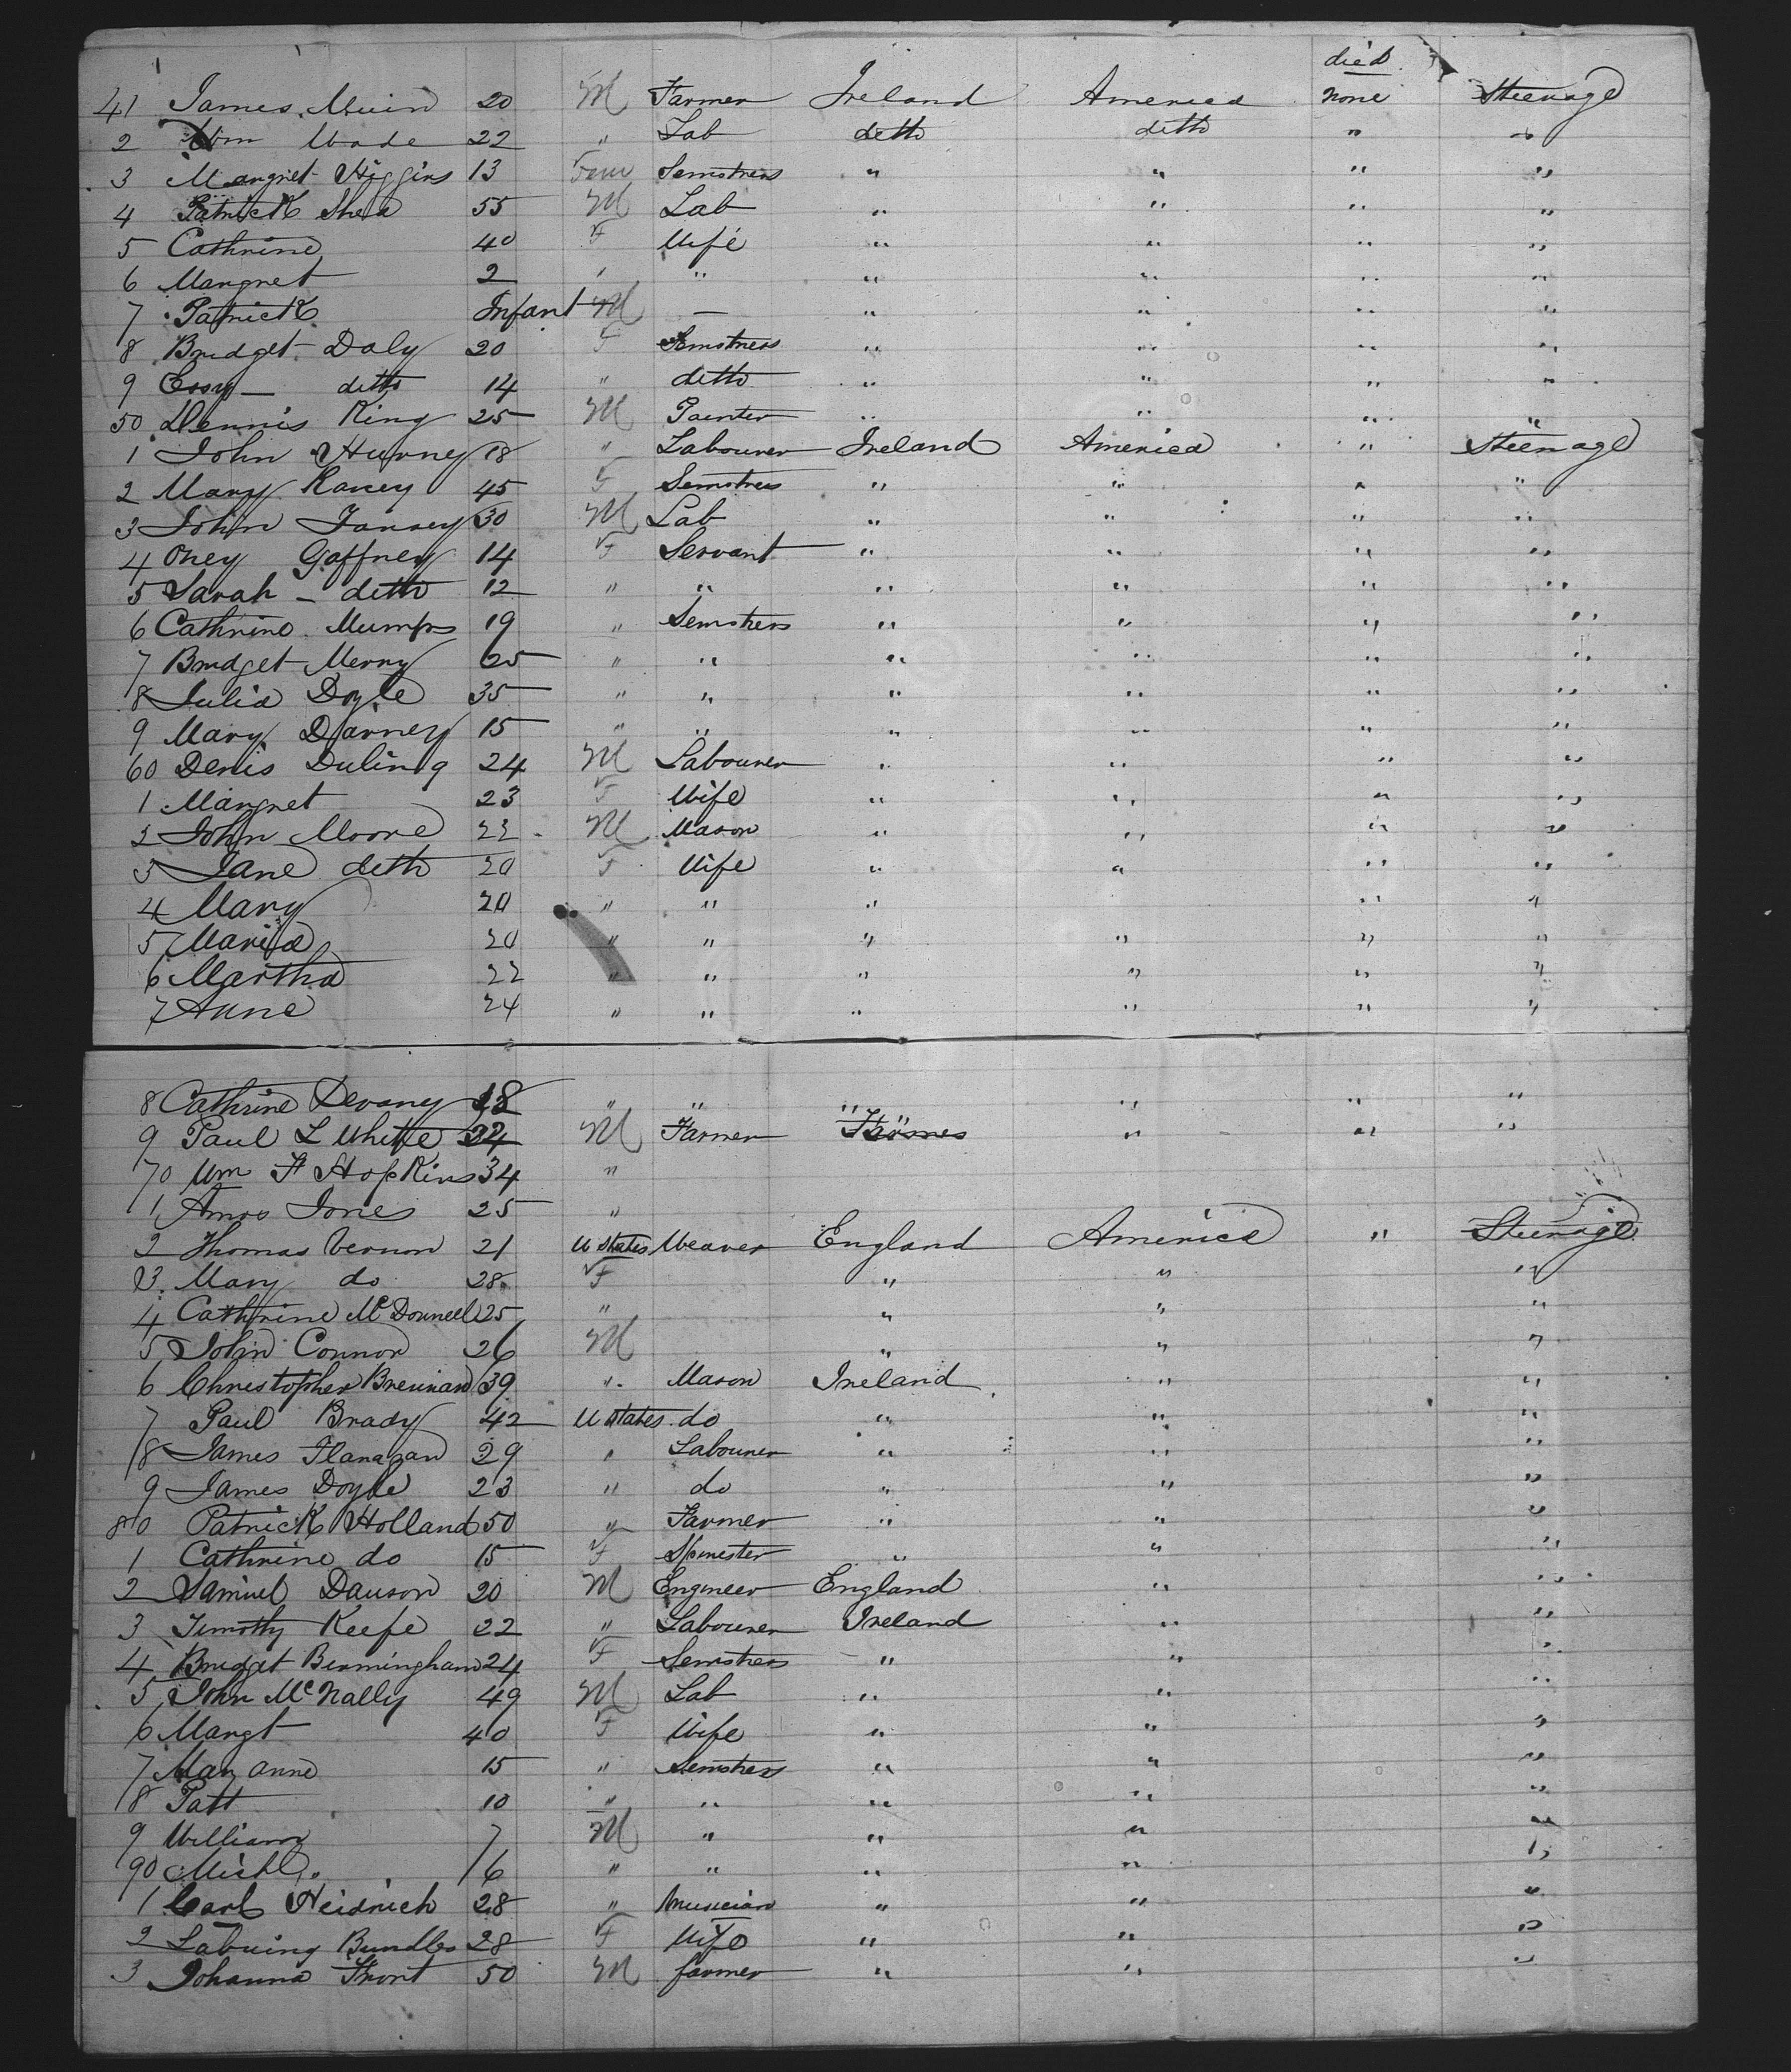 died
41 James Muin 20 M Farmer Ireland America none Steerage
2 Wm Wade 22 " Lab ditto ditto " "
3 Margret Higgins 13 Fem Semstress " " " "
4 Patrick Shea 55 M Lab " " " "
5 Cathrine 40 F Wife " " " "
6 Margret 2 " " " " " "
7 Patrick Infant M — " " " "
8 Bridget Daly 20 F Semstress " " " "
9 Essy — ditto 14 " ditto " " " "
50 Dennis King 25 M Painter " " " "
1 John Hurney 18 " Labourer Ireland America " Steerage
2 Mary Kaney 45 F Semstress " " " "
3 John Fansey 30 M Lab " " " "
4 Oney Gaffney 14 F Servant " " " "
5 Sarah — ditto 12 " " " " " "
6 Cathrine Mumps 19 " Semstress " " " "
7 Bridget Merry 25 " " " " " "
8 Julia Doyle 35 " " " " " "
9 Mary Darney 15 " " " " " "
60 Denis Duling 24 M Labourer " " " "
1 Margret 23 F Wife " " " "
2 John Moore 22 M Mason " " " "
3 Jane ditto 20 F Wife " " " "
4 Mary 20 " " " " "
5 Maria 20 " " " " " "
6 Martha 22 " " " " " "
7 Anne 24 " " " " " "
8 Cathrine Devaney 18 " " " " " "
9 Paul L White 34 M Farmer " " " "
70 Wm F Hopkins 34 "
1 Amos Jones 25 "
2 Thomas Vernon 21 U States Weaver England America " Steerage
3 Mary do 28 F " " "
4 Cathrine McDonnell 25 " " " "
5 John Connor 26 M " " "
6 Christopher Brennan 39 " Mason Ireland " "
7 Paul Brady 42 U States do " " "
8 James Flanagan 29 " Labourer " " "
9 James Doyle 23 " do " " "
80 Patrick Holland 50 " Farmer " " "
1 Cathrine do 15 F Spinester " " "
2 Samuel Dauson 20 M Engineer England " "
3 Timothy Keefe 22 " Labourer Ireland " "
4 Bridget Birmingham 24 F Semstress " " "
5 John McNally 49 M Lab " " "
6 Margt 40 F Wife " " "
7 Mary anne 15 " Semstress " " "
8 Patt 10 " " " " "
9 William 7 M " " " "
90 Michl. 6 " " " " "
1 Carl Heidrich 28 " Musician " " "
2 Bundles 28 F Wife " " "
3 Johanna Front 50 M farmer " " "